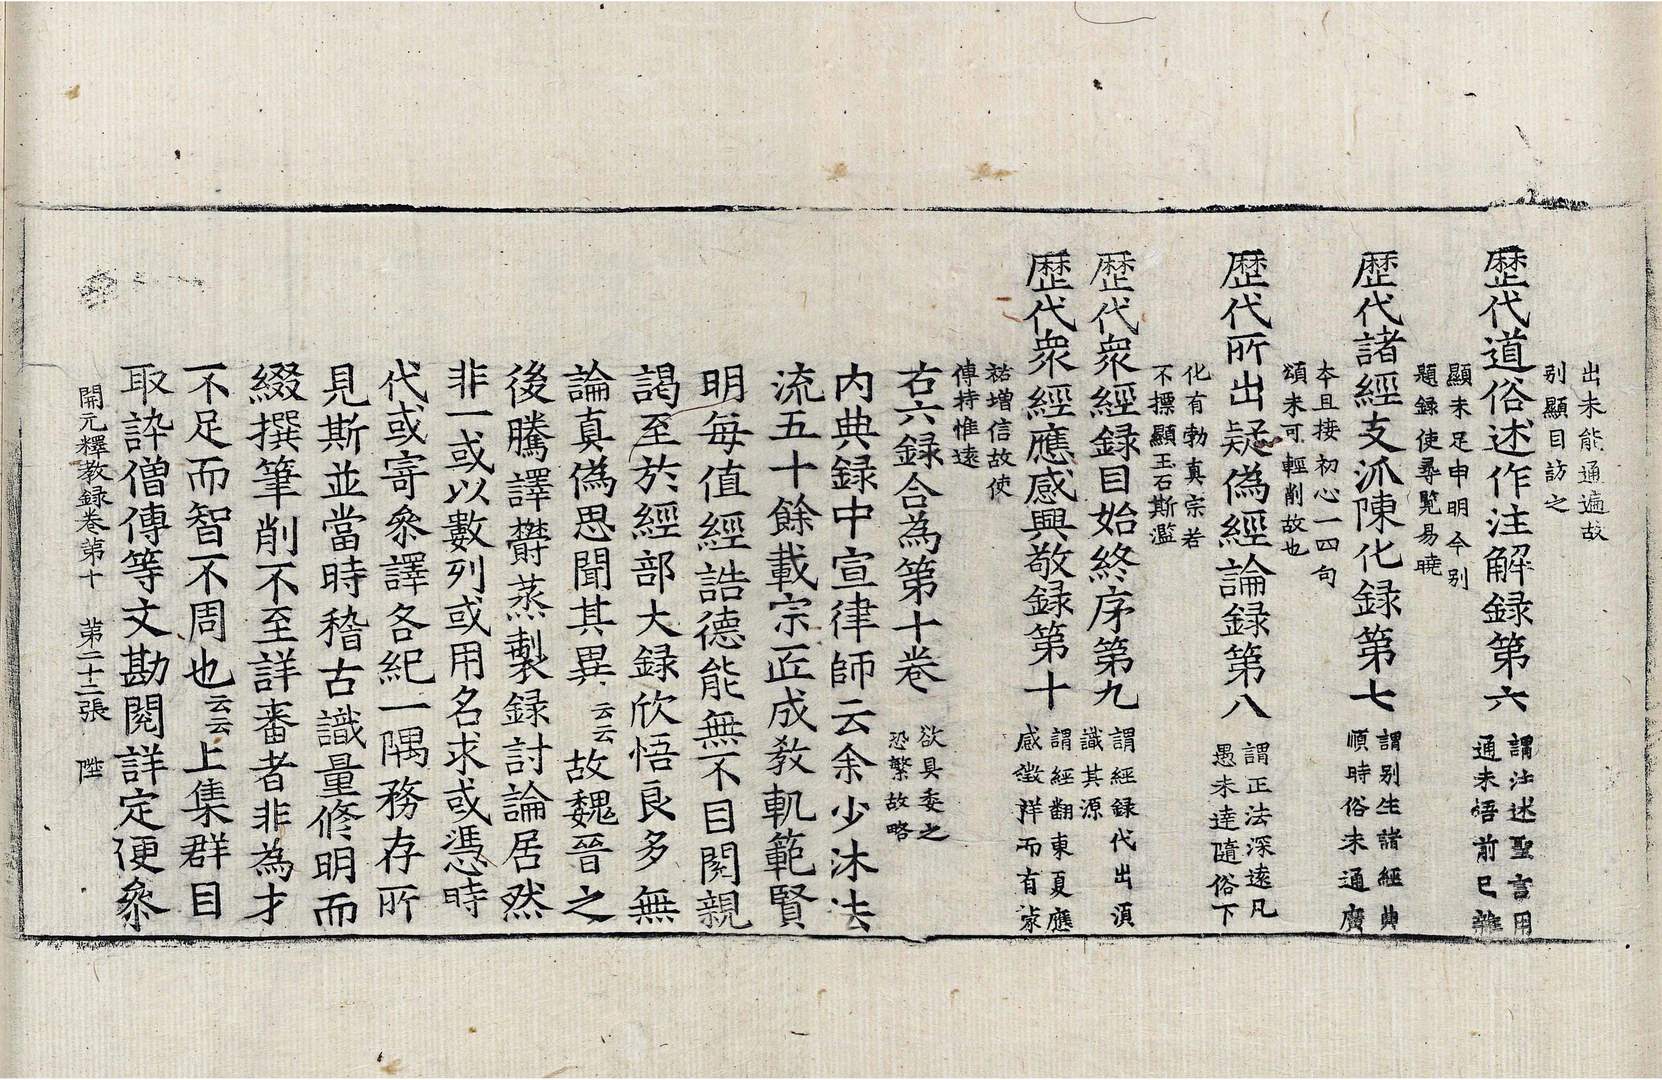 出未能通遍故
别顯目訪之
歷代道俗述作注解録第六 謂注述聖言用
通未悟前已雖
顯未足申明今别
題録使尋覽易曉
歷代諸經支派陳化録第七 謂别生諸經典
順時俗未通廣
本且接初心一四句
頌未可輕削故也
歷代所出疑偽經論録第八 謂正法深遠凡
愚未達隨俗下
化有勃真宗若
不摽顯玉石斯濫
歷代衆經録目始終序第九 謂經録代出須
識其源
歷代衆經應感興敬録第十 謂經翻東夏應
感徵祥而有蒙
祐增信故使
傳持惟遠
右六録合為第十卷 欲具委之
恐繁故略
内典録中宣律師云余少沐法
流五十餘載宗匠成教軌範賢
明每值經誥德能無不目閱親
謁至於經部大録欣悟良多無
論真偽思聞其異云云故魏晉之
後騰譯欝蒸製録討論居然
非一或以數列或用名求或憑時
代或寄叅譯各紀一隅務存所
見斯並當時稽古識量修明而
綴撰筆削不至詳審者非為才
不足而智不周也云云上集群目
取訡僧傳等文勘閱詳定便叅
開元釋教録卷第十 第二十二張 陞